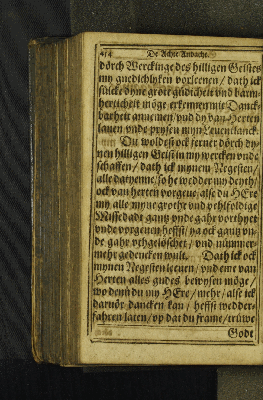 414 De Achte Andacht.
dörch Werckinge des hilligen Geistes
my gnedichlyken vorleenen / dath ick
sülcke dyne grote güdicheit vnd barm-
herticheit möge erkennen mit Danck-
barheit annemen / vnd dy van Herten
lauen vnde prysen myn Leuenlanck.
Du woldest ock ferner dörch dy-
nen hilligen Geist in my wercken vnde
schaffen / dath ick mynem Negesten /
alle datyenne / so he wedder my deyth /
ock van herten vorgeue / alse du HEre
my alle myne grothe vnd velfoldige
Missedade gantz vnde gahr vorthyet
vnde vorgeuen heffst / ya ock gantz vn-
de gahr vthgelöschet / vnd nümmer-
mehr gedencken wult. Dath ick ock
mynen Negesten leuen / vnd eme van
Herten alles gudes bewysen möge /
wo denn du my HEre / mehr / alse ick
daruör dancken kan / heffst wedder-
fahren laten / vp dat du frame / trüwe
Godt